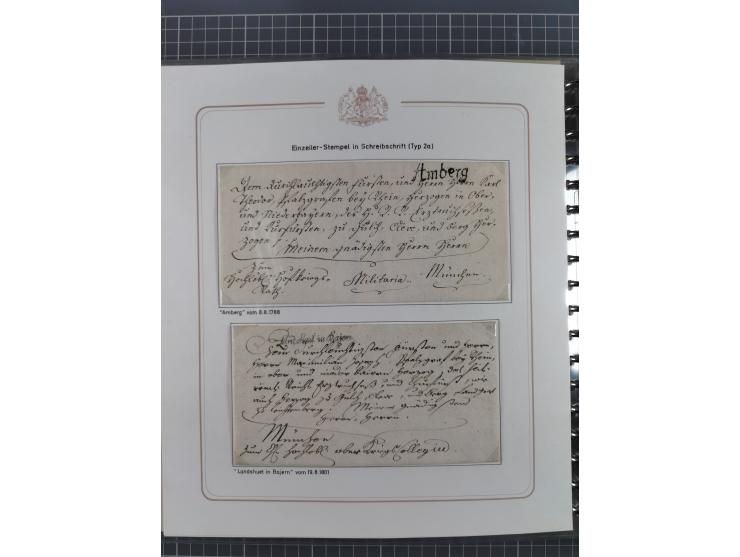 Einzeiler-Stempel in Schreibschrift (Typ 2a)
Amberg
Dem Durchlauchtigsten Fürsten, und Herrn Herrn Karl
Theodor, Pfalzgrafen bey Rhein, Herzogen in Ober-
und Niederbayern, des H. R. R. Erztruchseßen,
und Kurfürsten, zu Gülich, Cleve, und Berg Her-
zogen
Meinem gnädigsten Herrn Herrn
Zum
Hochlöbl. Hofkriegs-
Rath.
Militaria.
München
"Amberg" vom 8.8.1788
Dem Durchlauchtigsten Fürsten und Herrn,
Herrn Maximilian Joseph Pfalzgraf bey Rhein,
in ober und nieder Bairen Herzog, des heil.
und
auch Herzog zu Gülch Cleve, und Berg Landgraf
zu Leuchtenberg Meinem Gnädigsten
Herrn, Herrn.
München
zum
ober Kriegs Collegium
"Landshuet in Bajern" vom 19.8.1801